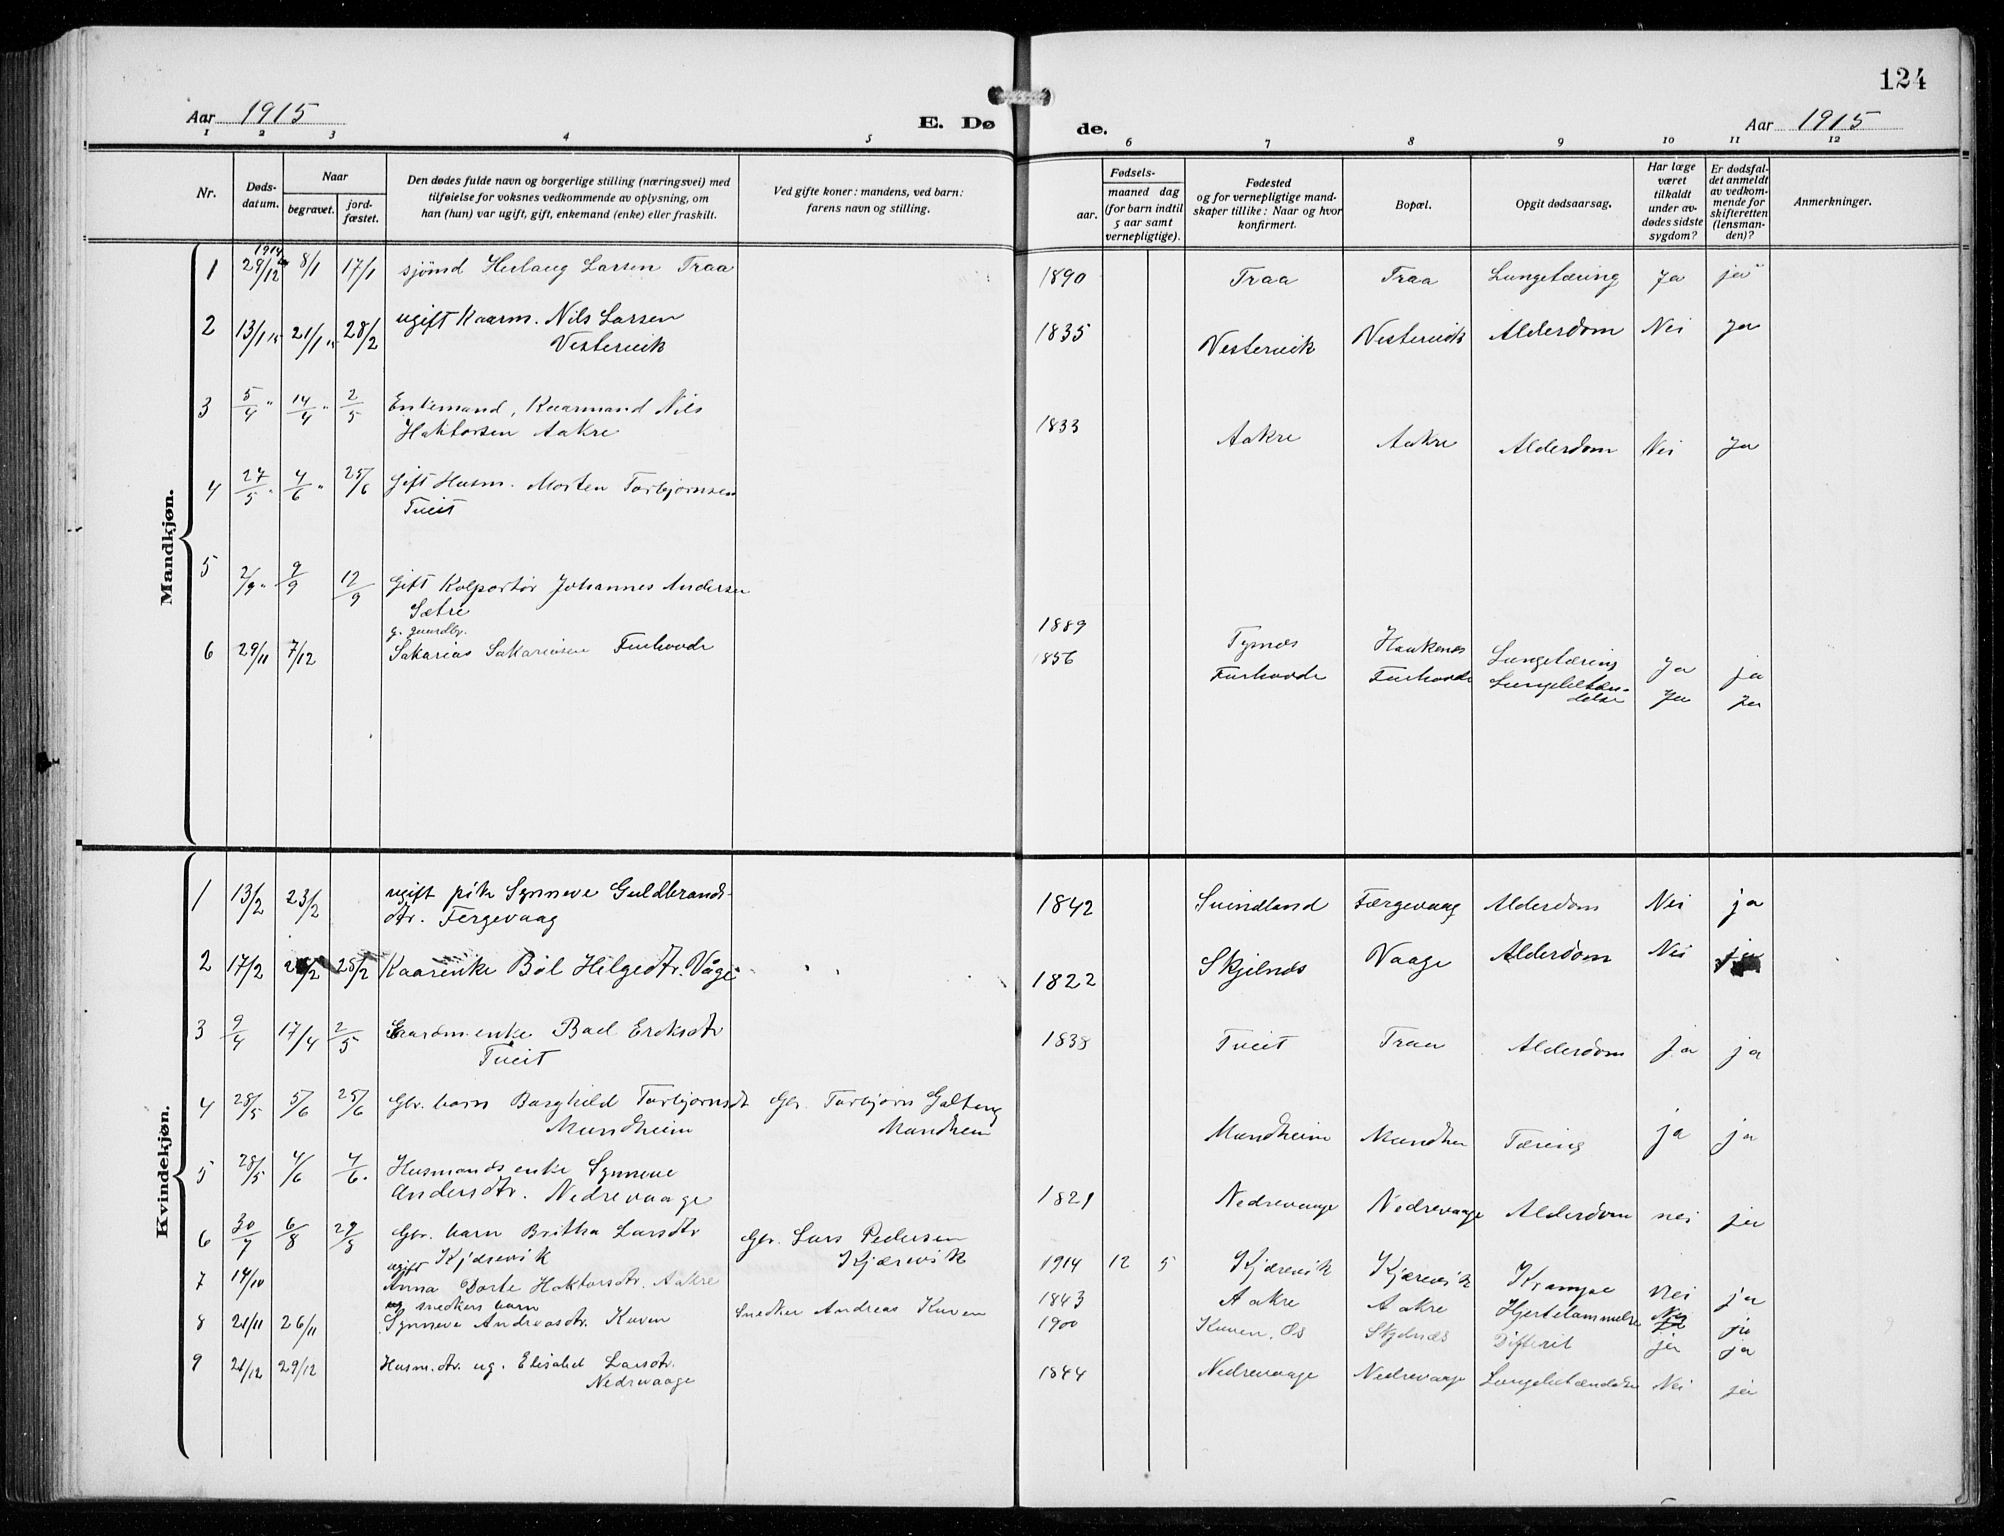 124
Aar 1915
E. Døde.
Aar 1915
1 2 3 4 5 6 7 8 9 10 11 12
Nr.
Døds-datum.
Naar
begravet.
jord-fæstet.
Den dødes fulde navn og borgerlige stilling (næringsvei) med
tilføielse for voksnes vedkommende av oplysning, om
han (hun) var ugift, gift, enkemand (enke) eller fraskilt.
Ved gifte koner: mandens, ved barn:
farens navn og stilling.
Fødsels-
aar.
maaned dag
(for barn indtil
5 aar samt
vernepligtige).
Fødested
og for vernepligtige mand-
skaper tillike: Naar og hvor
konfirmert.
Bopæl.
Opgit dødsaarsag.
Har læge
været
tilkaldt
under av-
dødes sidste
sygdom?
Er dødsfal-
det anmeldt
av vedkom-
mende for
skifteretten
(lensman-
den)?
Anmerkninger.
Mandkjøn.
1 1914 29/12 8/1 17/1 sjømd Herlaug Larsen Traa 1890 Traa Traa Lungetæring Ja ja
2 13/1 15 21/1 " 28/2 ugift Kaarm. Nils Larsen
Vestervik 1835 Vestervik Vestervik Alderdom Nei Ja
3 5/4 " 14/4 " 2/5 Enkemand, Kaarmand Nils
Haktorsen Aakre 1833 Aakre Aakre Alderdom Nei Ja
4 27/5 " 4/6 " 25/6 Gift Husm. Morten Torbjørnsen
Tveit
5 2/9 " 9/9 12/9 Gift Kolportør Johannes Andersen
Sætre 1889 Tynnes Haukenes Lungetæring Ja ja
6 29/11 7/12 g. gaardbr.
Sakarias Sakariasen Furhovde 1856 Furhovde Furhovde Lungebetæn-
delse Ja Ja
Kvindekjøn.
1 13/2 23/2 ugift pike Synneve Guldbrands-
dtr. Fergevaag 1842 Svindland Færgevaag Alderdom Nei ja
2 17/2 25/2 Kaarenke Bøl Helgedtr. Våge 1822 Skjelnes Vaage Alderdom Nei
3 9/4 17/4 2/5 Gaardm.enke Bael Eriksdtr
Tveit 1838 Tveit Traa Alderdom ja ja
4 28/5 5/6 25/6 Gbr. barn Borghild Torbjørnsdt
Mundheim Gbr. Torbjørn Galtung
Mundhem Mundheim Mundhem Tæring ja ja
5 28/5 4/6 4/6 Husmands enke Synneve
Andersdtr. Nedrevaage 1821 Nedrevaage Nedrevaage Alderdom nei ja
6 30/7 6/8 Gbr. barn Britha Larsdtr
Kjærevik Gbr. Lars Pedersen
Kjærevik 1914 12 5 Kjærevik Kjærevik Krampe nei ja
7 14/10 ugift
Anna Dorte Haktorsdtr. Aakre 1843 Aakre Aakre Hjertelammelse Nei ja
8 21/11 26/11 snedkers barn
Synneve Andreasdtr. Kuven Snedker Andreas Kuven 1900 Kuven, Os Skjelnes Difterit ja ja
9 21/12 29/12 Husm.dtr. ug. Elisabet Larsdtr.
Nedrevaage 1844 Nedrevaage Nedrevaage Lungebetændelse Nei ja